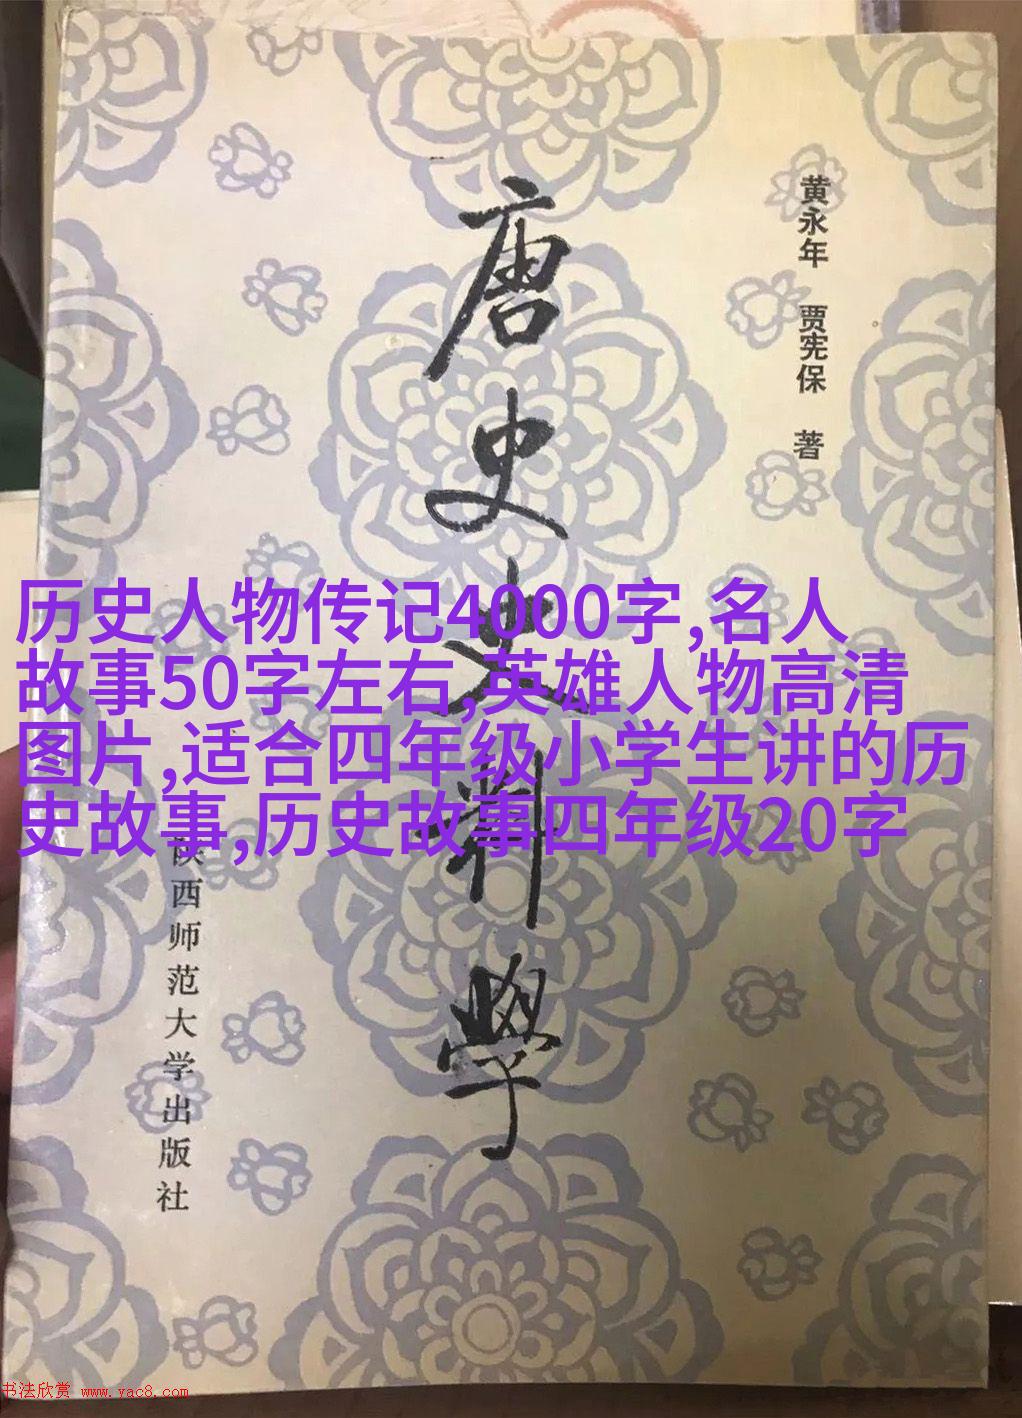 黄永年 贾宪保 著
唐史史料学
历史人物传记4000字,名人
故事50字左右,英雄人物高清
图片,适合四年级小学生讲的历
史故事,历史故事四年级20字
陕西师范大学出版社
书法欣赏 www.yac8.com